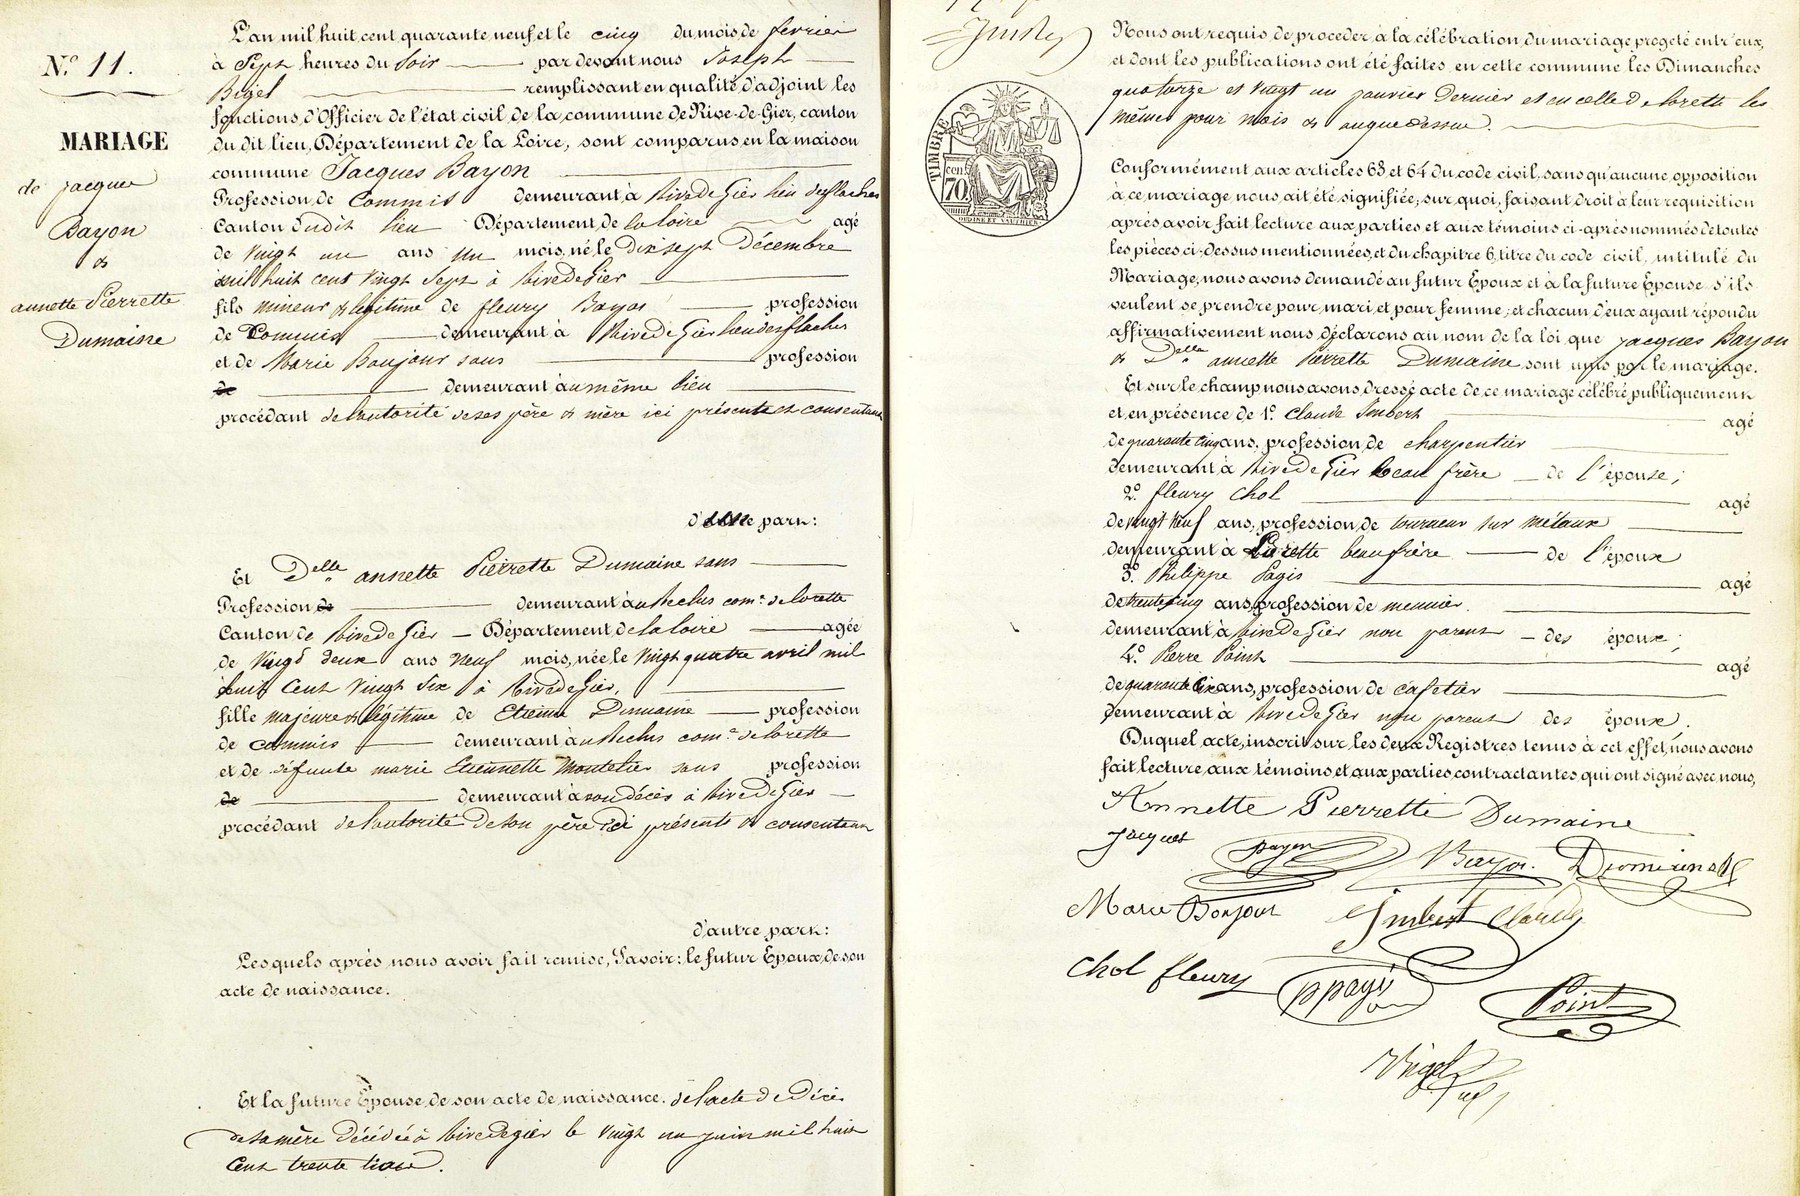 N.º 11.
MARIAGE
de jacques
Bayon
&
annette Pierrette
Dumaine
L'an mil huit cent quarante neuf, et le cinq du mois, de février
à Sept heures du Soir par devant nous Joseph
Bigel remplissant en qualité d'adjoint les
fonctions, d'Officier de l'état civil de la commune de Rive-de-Gier, canton
du dit lieu, Département de la Loire, sont comparus en la maison
commune Jacques Bayon
Profession, de Commis demeurant, à Rive de Gier lieu desflaches
Canton, dudit lieu Département, de la loire agé
de vingt un ans un mois, né, le Dix sept Décembre
mil huit cent vingt sept à Rive de Gier
fils mineur & légitime de fleury Bayon profession
de Commis demeurant à Rive de Gier lieu desflaches
et de Marie Bonjour sans profession
de demeurant, à au même lieu
procédant de l'autorité de ses père & mère ici présents et consentans
d'une part:
Et Delle annette Pierrette Dumaine sans
Profession de demeurant, à au Reclus com.e de lorette
Canton, de Rive de Gier Département, de la loire agée
de vingt deux ans neuf mois, née, le vingt quatre avril mil
huit Cent vingt Six à Rive de Gier,
fille majeure & légitime de Etienne Dumaine profession
de commis demeurant à au Reclus com.e de lorette
et de défunte marie Etiennette Montelier sans profession
de demeurant, à son décès à Rive de Gier
procédant de l'autorité de son père ici présent & consentant
d'autre part:
Lesquels après, nous avoir fait remise, Savoir: le futur Epoux, de son
acte de naissance.
Et la future Epouse, de son acte de naissance. de l'acte de Décès
de sa mère Décédée à Rive de gier le vingt un juin mil huit
Cent trente
TIMBRE
cen.
70
Nous ont requis de procéder à la célébration, du mariage, progeté entr'eux,
et dont les publications ont été faites, en cette commune les Dimanches
quatorze et vingt un janvier Dernier et en celle De lorette les
mêmes jour mois & an que dessus.
Conformément aux articles 63 et 64 du code civil, sans qu'aucune, opposition
à ce mariage nous ait été signifiée; sur quoi, faisant droit à leur requisition
après avoir fait lecture aux parties et aux témoins ci-après nommés de toutes
les pièces ci-dessus mentionnées, et du chapitre 6, titre du code civil, intitulé du
Mariage, nous avons demandé au futur Epoux et à la future Epouse s'ils
veulent se prendre pour mari, et pour femme; et chacun d'eux ayant répondu
affirmativement nous déclarons au nom de la loi que jacques Bayon
& Delle annette Pierrette Dumaine sont unis par le mariage.
Et sur le champ nous avons dressé acte de ce mariage célébré publiquement
et, en présence de 1º. Claude Imbert agé
de quarante cinq ans, profession de charpentier
demeurant à Rive de Gier beau frère de l'épouse;
2º. fleury Chol agé
de vingt neuf ans, profession, de tourneur sur métaux
demeurant à Lorette beau frère de l'époux
3º. Philippe Pagis agé
de trente cinq ans, profession de meunier.
demeurant à Rive de Gier non parent des époux;
4º. Pierre Point agé
de quarante six ans, profession de cafetier
demeurant à Rive de Gier non parent des époux.
Duquel acte, inscrit sur les deux Registres tenus à cet effet, nous avons
fait lecture aux témoins, et aux parties, contractantes, qui ont signé avec nous,
Annette Pierrette Dumaine
jacques Bayon Bayon Dumaine
Marie Bonjour Imbert Claude
Chol fleury p pagi Point
Bigel